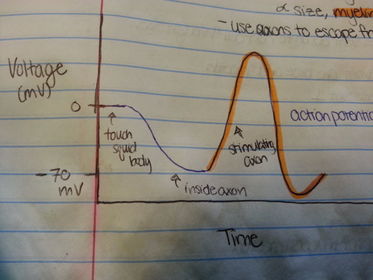 ∝ size, myelin
- use axons to escape fr
Voltage
(mV)
0
touch
squid
body
action potentia
stimulating
axon
-70
mV
inside axon
Time